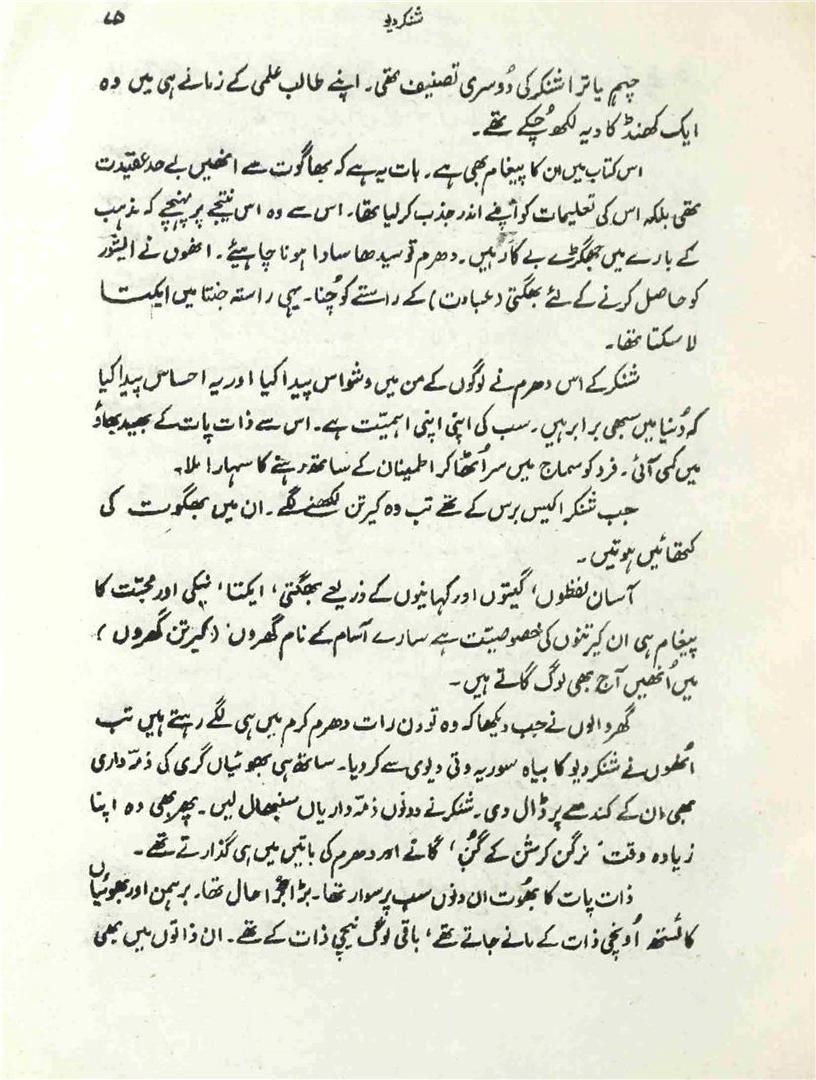 شنکر دیو
۷۵
چہم یاترا شنکر کی دُوسری تصنیف تھی۔ اپنے طالب علمی کے زمانے ہی میں وہ
ایک کھنڈ کا دیہ لکھ چُکے تھے۔
اس کتاب میں ان کا پیغام بھی ہے۔ بات یہ ہے کہ بھاگوت سے انھیں بے حد عقیدت
تھی بلکہ اس کی تعلیمات کو اپنے اندر جذب کر لیا تھا۔ اس سے وہ اس نتیجے پر پہنچے کہ مذہب
کے بارے میں جھگڑے بے کار ہیں۔ دھرم تو سیدھا سادا ہونا چاہیئے۔ انھوں نے ایشور
کو حاصل کرنے کے لئے بھگتی (عبادت) کے راستے کو چُنا۔ یہی راستہ جنتا میں ایکتا
لا سکتا تھا۔
شنکر کے اس دھرم نے لوگوں کے من میں وشواس پیدا کیا اور یہ احساس پیدا کیا
کہ دُنیا میں سبھی برابر ہیں۔ سب کی اپنی اپنی اہمیّت ہے۔ اس سے ذات پات کے بھید بھاؤ
میں کمی آئی۔ فرد کو سماج میں سر اُٹھا کر اطمینان کے ساتھ رہنے کا سہارا ملا۔
جب شنکر اکیس برس کے تھے تب وہ کیرتن لکھنے لگے۔ ان میں بھگوت کی
کتھائیں ہوتیں۔
آسان لفظوں، گیتوں اور کہانیوں کے ذریعے بھگتی، ایکتا، نیکی اور محبّت کا
پیغام ہی ان کیرتنوں کی خصوصیّت ہے سارے آسام کے نام گھروں (کیرتن گھروں)
میں اُنھیں آج بھی لوگ گاتے ہیں۔
گھر والوں نے جب دیکھا کہ وہ تو دن رات دھرم کرم میں ہی لگے رہتے ہیں تب
اُنھوں نے شنکر دیو کا بیاہ سوریہ وتی دیوی سے کر دیا۔ ساتھ ہی بھوئیاں گری کی ذمّہ داری
بھی ان کے کندھے پر ڈال دی۔ شنکر نے دونوں ذمّہ داریاں سنبھال لیں۔ پھر بھی وہ اپنا
زیادہ وقت ’نرگن کرشن کے گُن‘، گانے اور دھرم کی باتیں میں ہی گذارتے تھے۔
ذات پات کا بھُوت ان دنوں سب پر سوار تھا۔ بڑا بُرا حال تھا۔ برہمن اور بھوئیاں
کائستھ اُونچی ذات کے مانے جاتے تھے، باقی لوگ نیچی ذات کے تھے۔ ان ذاتوں میں بھی